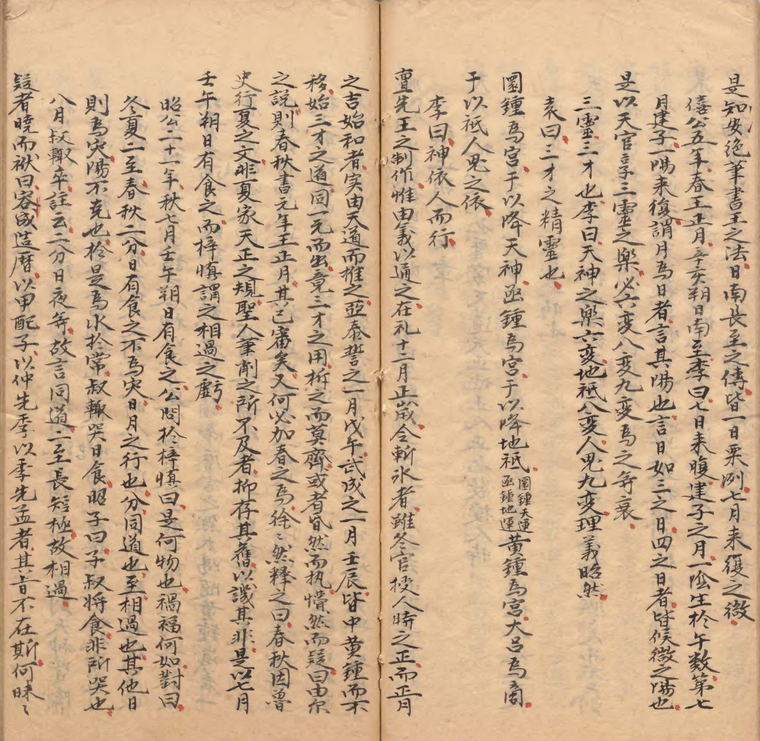 是知安絶筆書王之法日南長至之傳皆一日栗冽七月来復之徴
僖公五年春王正月辛亥朔日南至李曰七日来復建子之月一陰生於午数第七
月建子一陽来復謂月為日者言其陽也言日如三之日四之日者皆候徴之陽也
是以天官享三靈之樂必六変八変九変為之等衰
三靈三才也李曰天神之樂六変地祇八変人鬼九変理義昭然
袁曰三才之精靈也
圜鍾為宮于以降天神凾鍾為宮于以降地祇圜鍾天運凾鍾地運黄鍾為宮大吕為商
于以祇人鬼之依
李曰神依人而行
亶先王之制作惟由義以通之在礼十二月正歲令斬氷者雖冬官授人時之正而正月
之吉始和者実由天道而推之亞泰誓之一月戊午武成之一月壬辰皆中黄鍾而不
移始三才之道同一元而出章三才之用析之而莫齊或者昏然而执懵然而疑曰由尔
之說則春秋書元年王正月其已審矣又何必加春之為徐〻然釋之曰春秋因魯
史行夏之文非夏家天正之規聖人筆削之所不及者抑存其舊以譏其非是以七月
壬午朔日有食之而梓慎謂之相過之虧
昭公二十一年秋七月壬午朔日有食之公問於梓慎曰是何物也禍福何如對曰
冬夏二至春秋二分日有食之不為灾日月之行也分同道也至相過也其他日
則為灾陽不克也於是為水於常叔輙哭日食昭子曰子叔将食非所哭也
八月叔輙卒註云二分日夜等故言同道二至長短極故相過
疑者曉而袱曰容成造曆以甲配子以仲先季以季先孟者其旨不在斯何昧〻